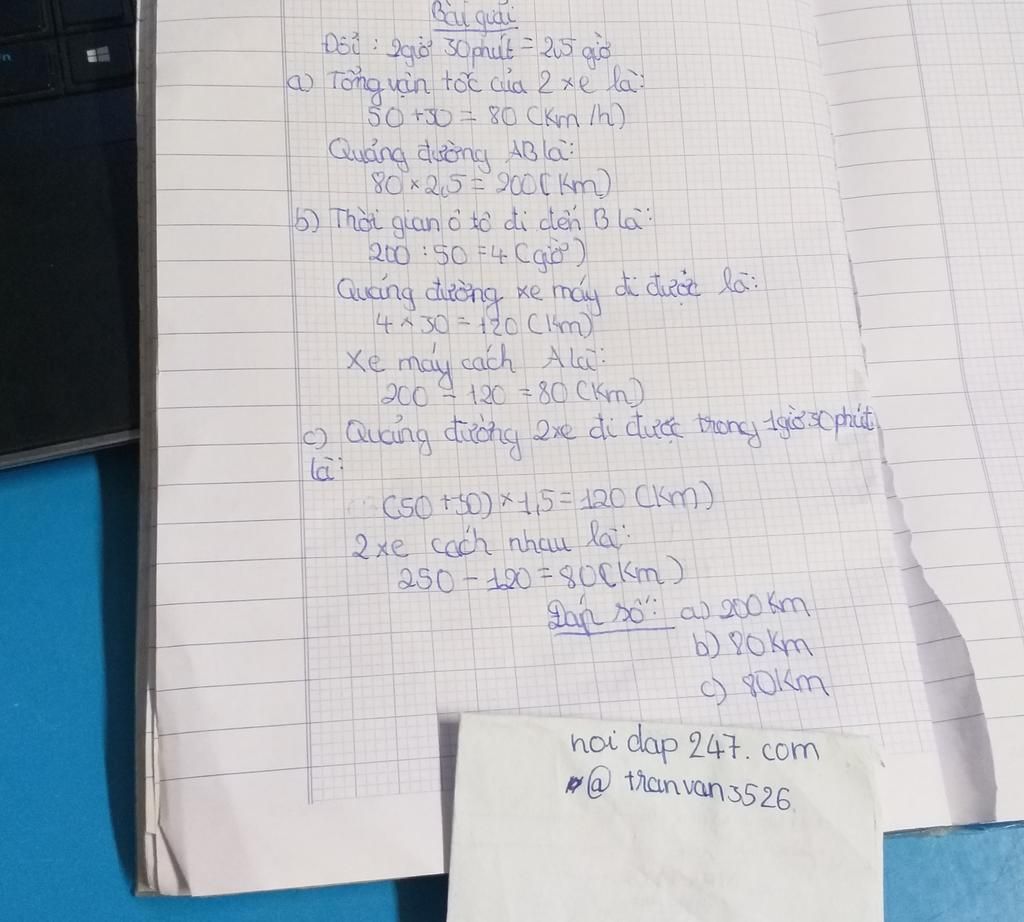 Bài giải
Đổi : 2giờ 30phút = 2,5 giờ
a) Tổng vận tốc của 2 xe là:
50 + 30 = 80 (km/h)
Quảng đường AB là:
80 × 2,5 = 200 (km)
b) Thời gian ô tô đi đến B là:
200 : 50 = 4 (giờ)
Quảng đường xe máy đi được là:
4 × 30 = 120 (km)
Xe máy cách A là:
200 - 120 = 80 (km)
c) Quảng đường 2xe đi được trong 1giờ30phút
là:
(50 + 30) × 1,5 = 120 (km)
2 xe cách nhau là:
250 - 120 = 80 (km)
Đáp số: a) 200 km
b) 80 km
c) 80 km
noi dap 247. com
@ tranvan3526